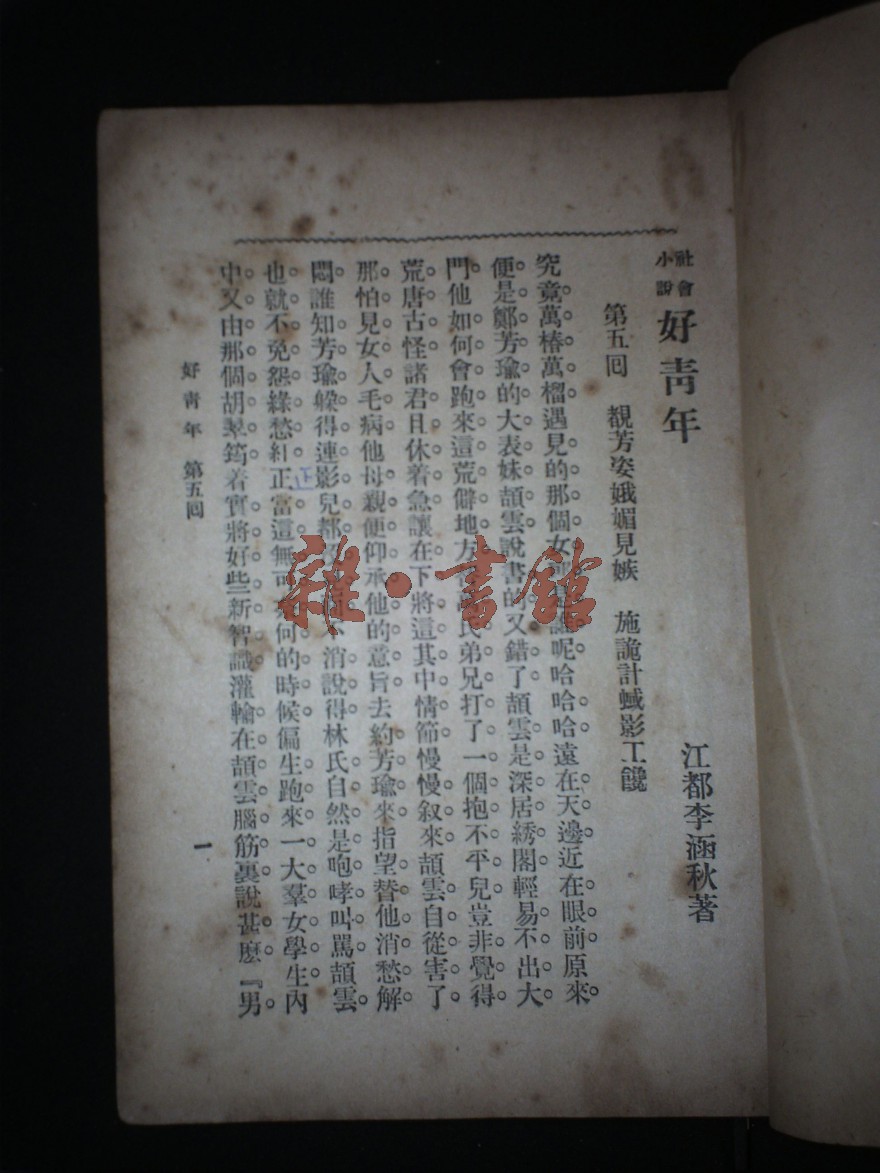 社會小說 好青年
江都李涵秋著
第五回 覩芳姿娥媚見嫉 施詭計蜮影工饞
究竟萬椿萬榴遇見的那個女呢哈哈哈遠在天邊近在眼前原來
便是鄭芳瑜的大表妹頡雲說書的又錯了頡雲是深居綉閣輕易不出大
門他如何會跑來這荒僻地方替萬氏弟兄打了一個抱不平兒豈非覺得
荒唐古怪諸君且休着急讓在下將這其中情節慢慢叙來頡雲自從害了
那怕見女人毛病他母親便仰承他的意旨去約芳瑜來指望替他消愁解
悶誰知芳瑜躱得連影兒都不消說得林氏自然是咆哮叫罵頡雲
也就不免怨綠愁紅正當這無可奈何的時候偏生跑來一大羣女學生內
中又由那個胡翠筠着實將好些新智識灌輸在頡雲腦筋裏說甚麽『男
好青年 第五回
一
正
雜·書館